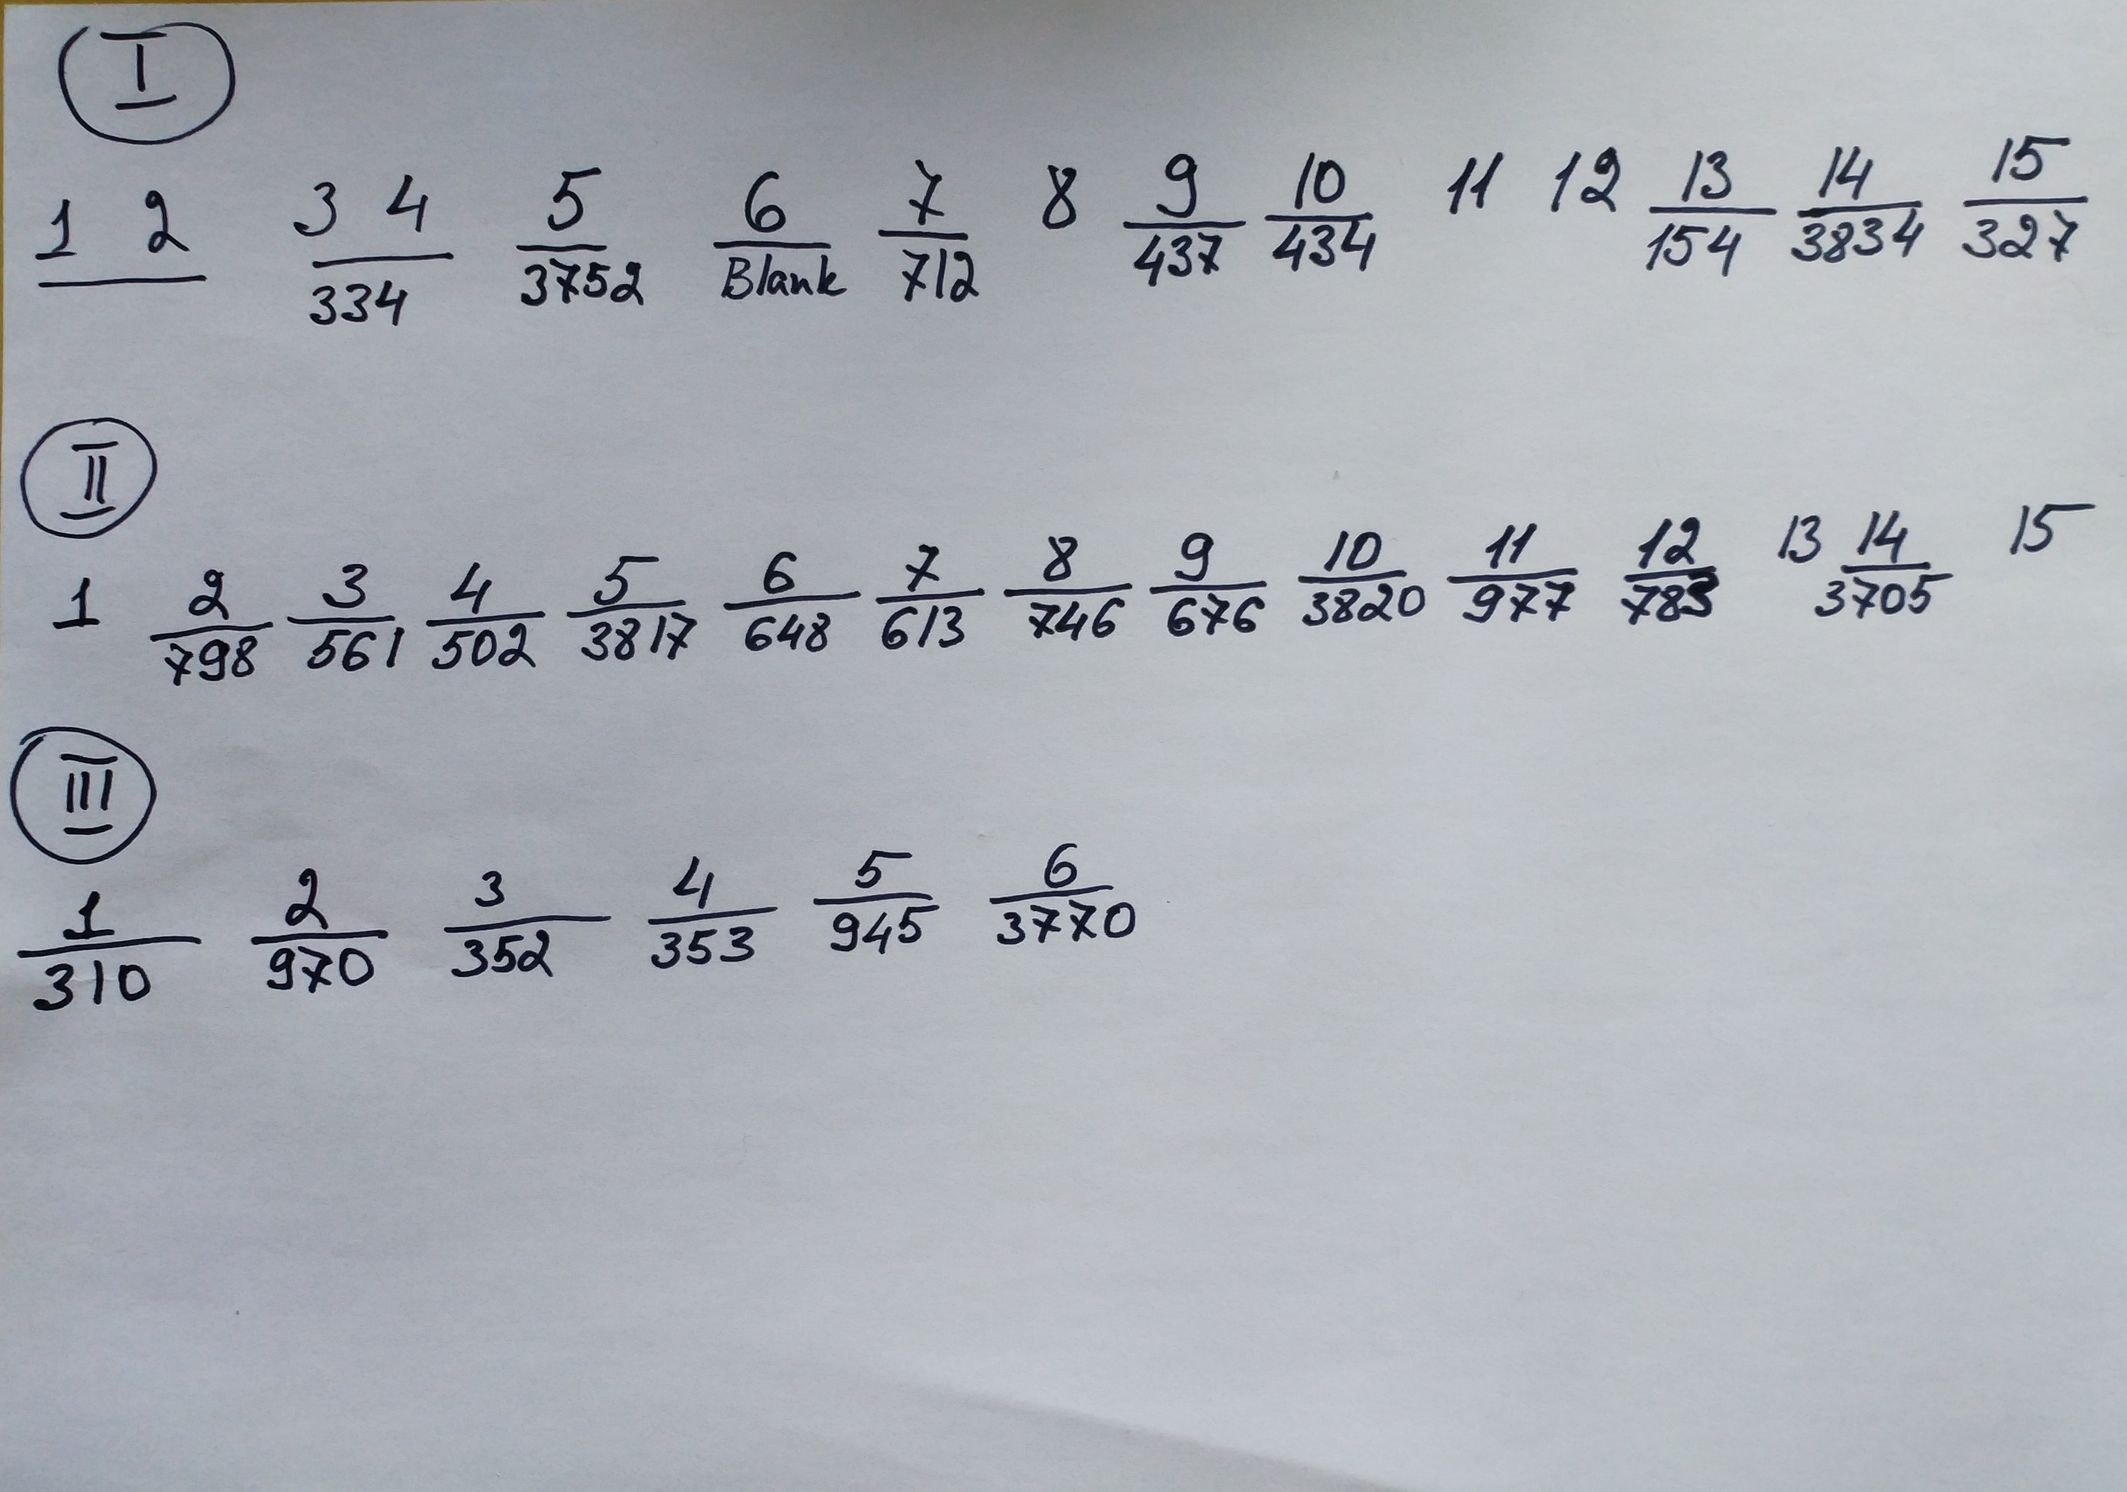 I
1 2 3 4 5 6 7 8 9 10 11 12 13 14 15
334 3752 Blank 712 437 434 154 3834 327
II
1 2 3 4 5 6 7 8 9 10 11 12 13 14 15
798 561 502 3817 648 613 746 676 3820 977 783 3705
III
1 2 3 4 5 6
310 970 352 353 945 3770